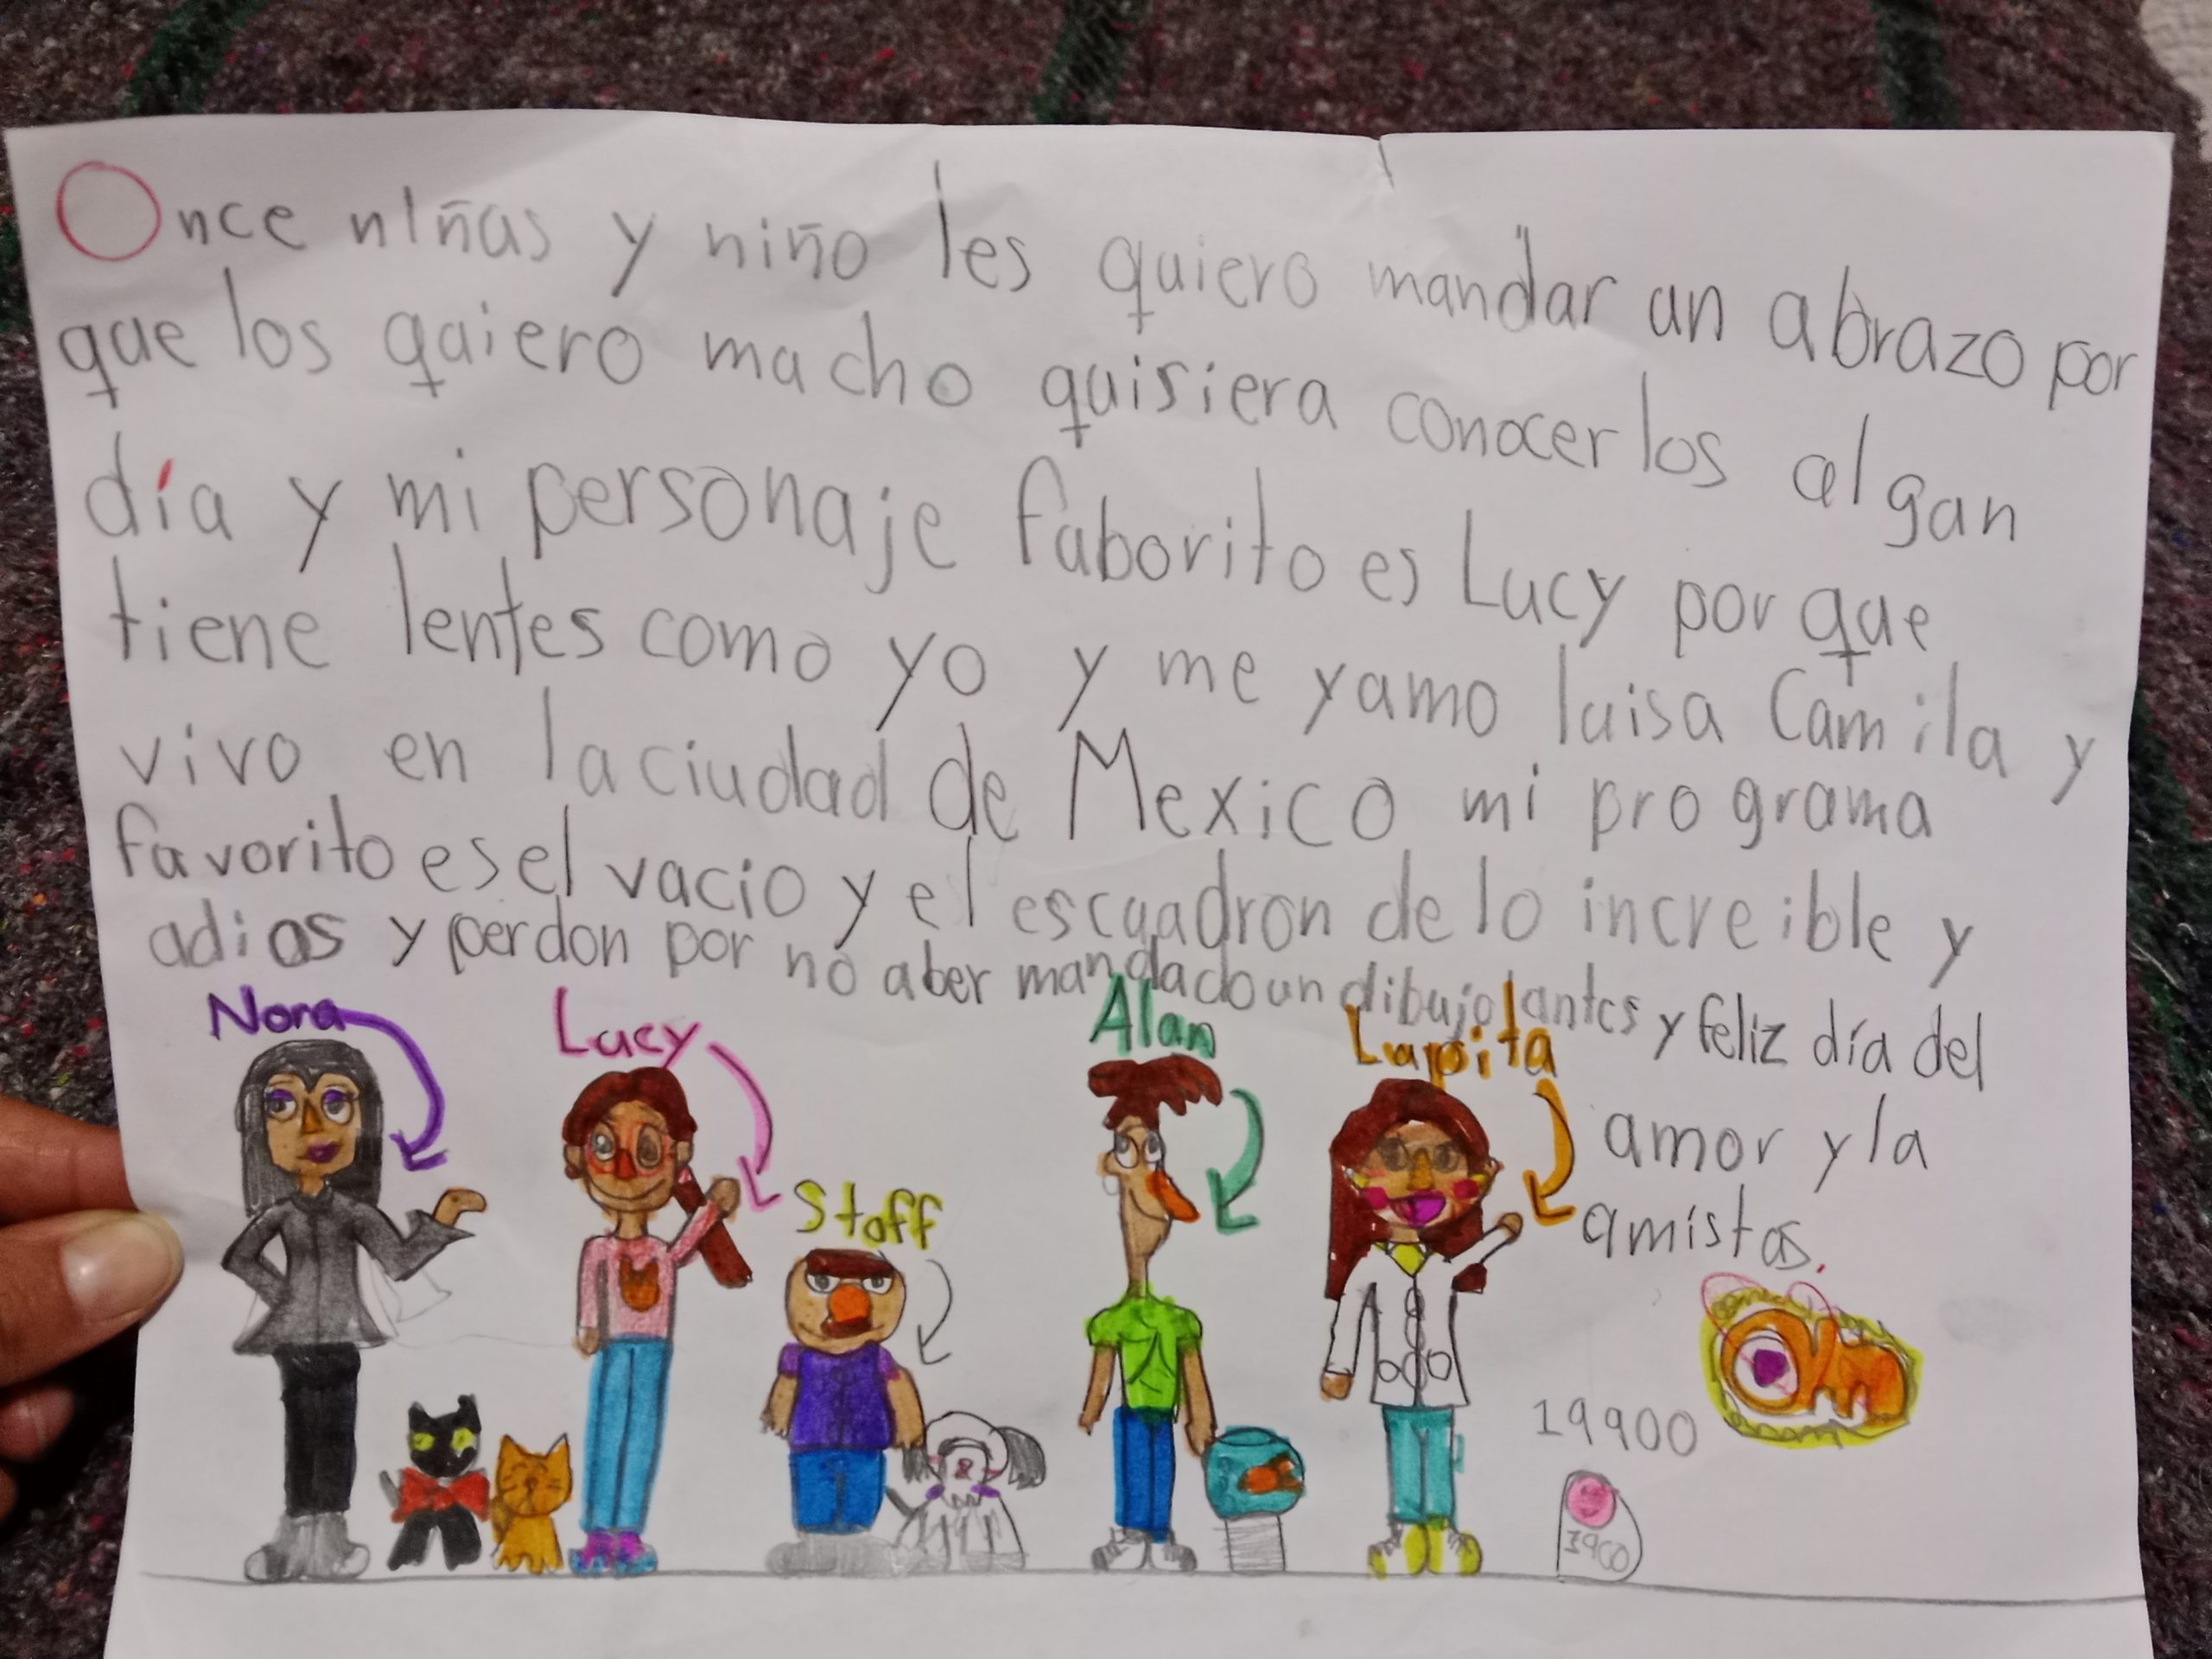 Once niñas y niño les quiero mandar un abrazo por
que los quiero mucho quisiera conocer los algun
día y mi personaje faborito es Lucy por que
tiene lentes como yo y me yamo luisa Camila y
vivo en la ciudad de Mexico mi programa
favorito es el vacio y el escuadron de lo increible y
adios y perdon por no aber mandado un dibujo antes y feliz día del
amor y la
amistas.
Nora
Lucy
Staff
Alan
Lupita
19900